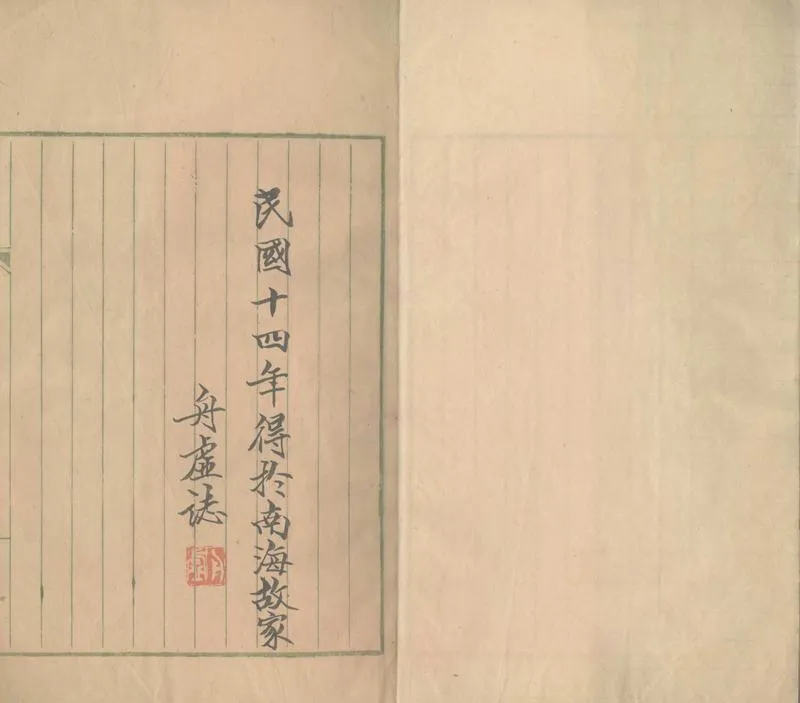 民國十四年得於南海故家
舟虛誌